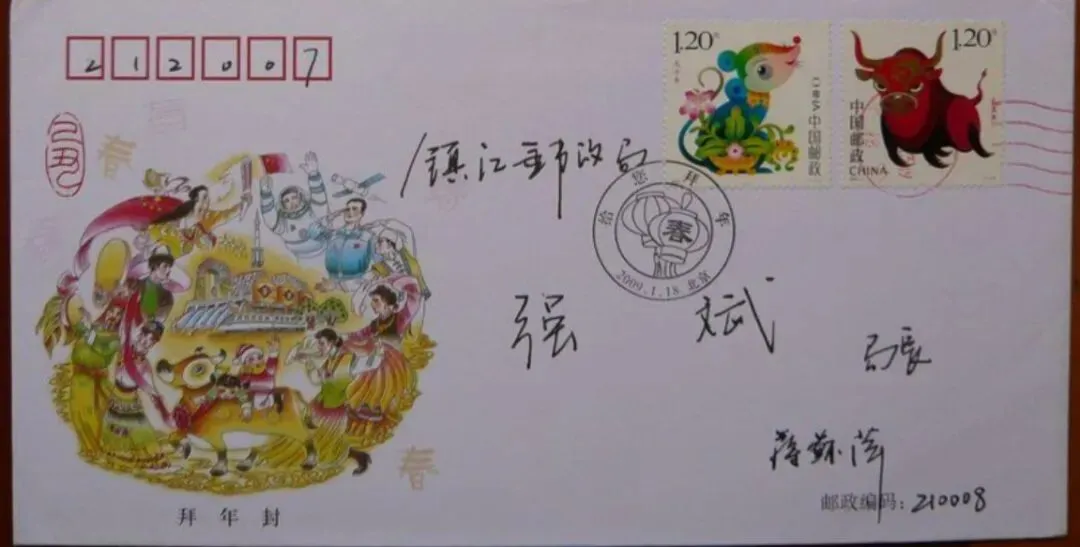 212007
己丑
春
1.20元
戊子年
CHINA中国邮政
1.20元
中国邮政
CHINA
镇江邮政局
给您拜年
春
2009.1.18.北京
强 斌 局长
蒋苏萍
春
拜年封
邮政编码：210008